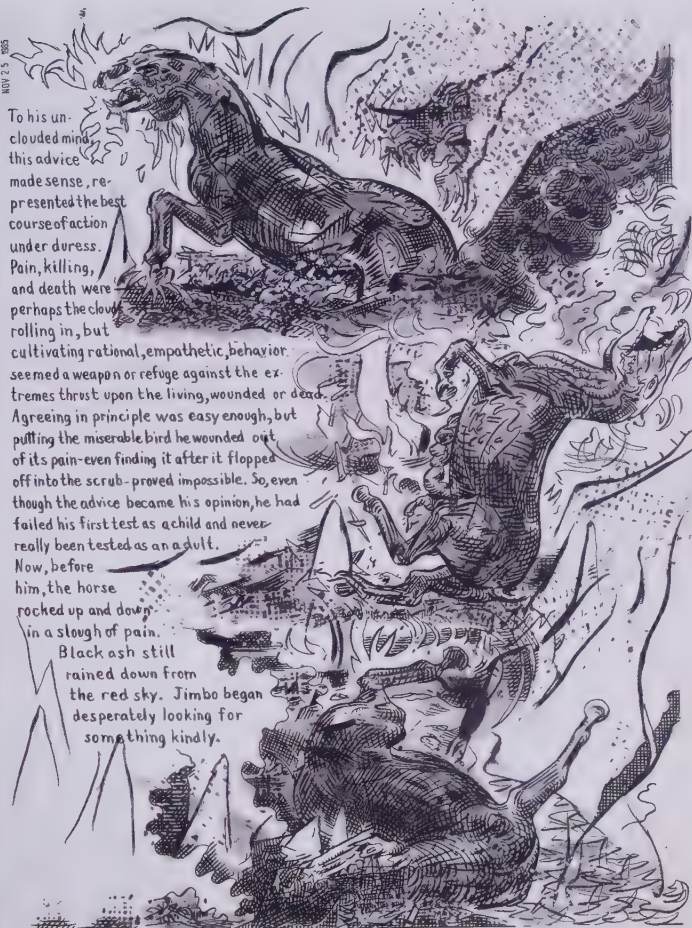 NOV 25 1985
To his un-
clouded mind,
this advice
made sense, re-
presented the best
course of action
under duress.
Pain, killing,
and death were
perhaps the clouds
rolling in, but
cultivating rational, empathetic, behavior
seemed a weapon or refuge against the ex-
tremes thrust upon the living, wounded or dead.
Agreeing in principle was easy enough, but
putting the miserable bird he wounded out
of its pain-even finding it after it flopped
off into the scrub-proved impossible. So, even
though the advice became his opinion, he had
failed his first test as a child and never
really been tested as an adult.
Now, before
him, the horse
rocked up and down
in a slough of pain.
Black ash still
rained down from
the red sky. Jimbo began
desperately looking for
something kindly.